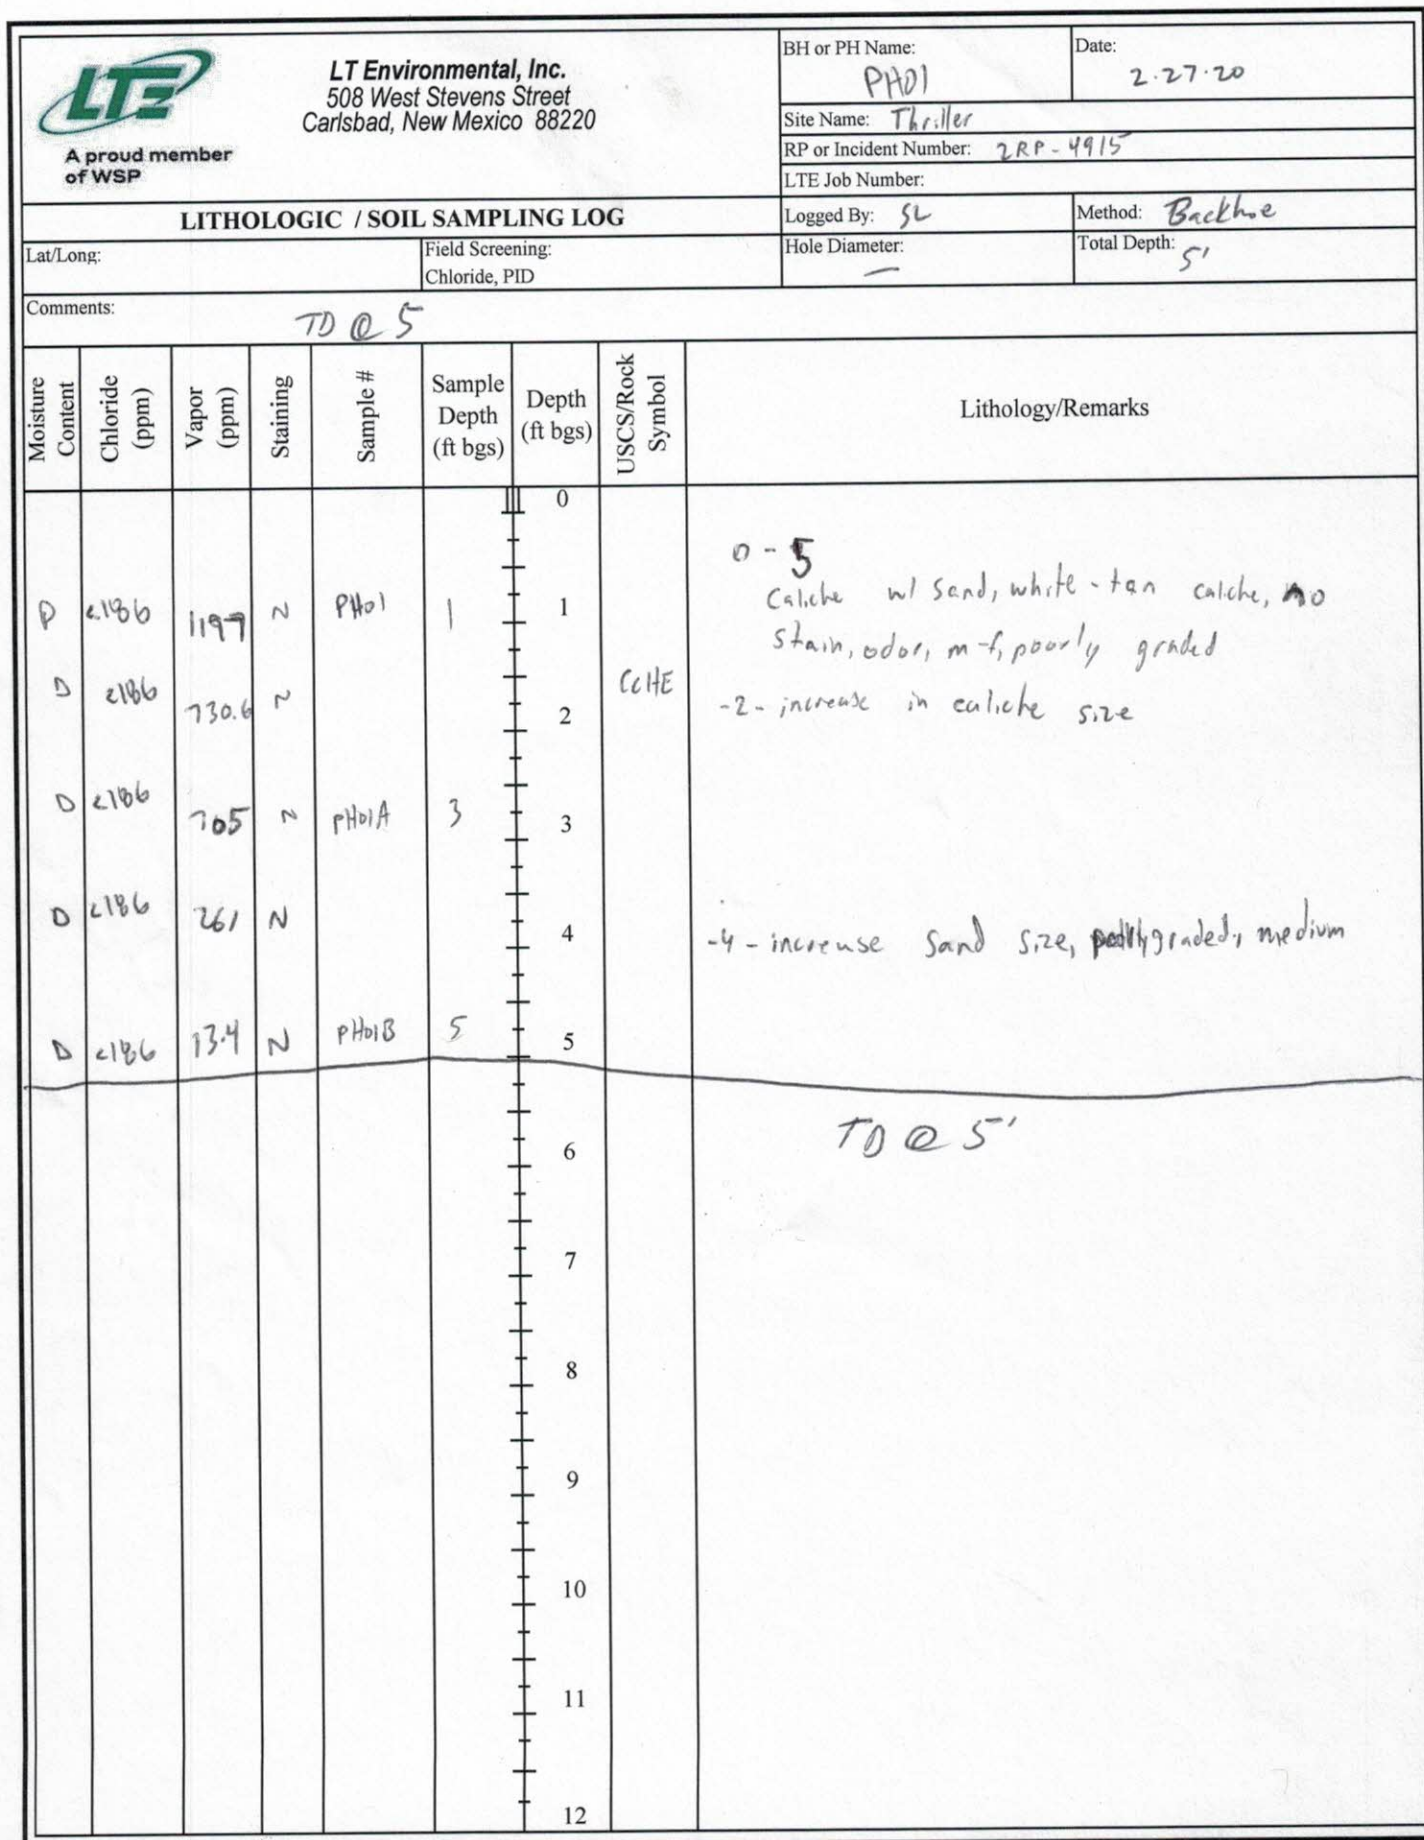 LTE
A proud member
of WSP
LT Environmental, Inc.
508 West Stevens Street
Carlsbad, New Mexico 88220
BH or PH Name: PH01
Date: 2.27.20
Site Name: Thriller
RP or Incident Number: 2RP-4915
LTE Job Number:
LITHOLOGIC / SOIL SAMPLING LOG
Logged By: SL
Method: Backhoe
Lat/Long:
Field Screening:
Chloride, PID
Hole Diameter: —
Total Depth: 5'
Comments: TD @ 5
Moisture Content
Chloride (ppm)
Vapor (ppm)
Staining
Sample #
Sample Depth (ft bgs)
Depth (ft bgs)
USCS/Rock Symbol
Lithology/Remarks
0
0 - 5
D <186 1197 N PH01 1 1 Caliche w/ sand, white-tan calche, no
stain, odor, m-f, poorly graded
D <186 730.6 N 2 CCHE -2- increase in caliche size
D <186 705 N PH01A 3 3
D <186 261 N 4 -4- increase sand size, poorly graded, medium
D <186 73.4 N PH01B 5 5
TD @ 5'
6
7
8
9
10
11
12